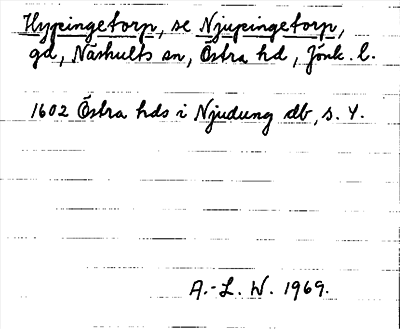 Hypingetorp, se Njupingetorp,
gd, Näshults sn, Östra hd, Jönk. l.
1602 Östra hds i Njudung db, s. 4.
A.-L. W. 1969.